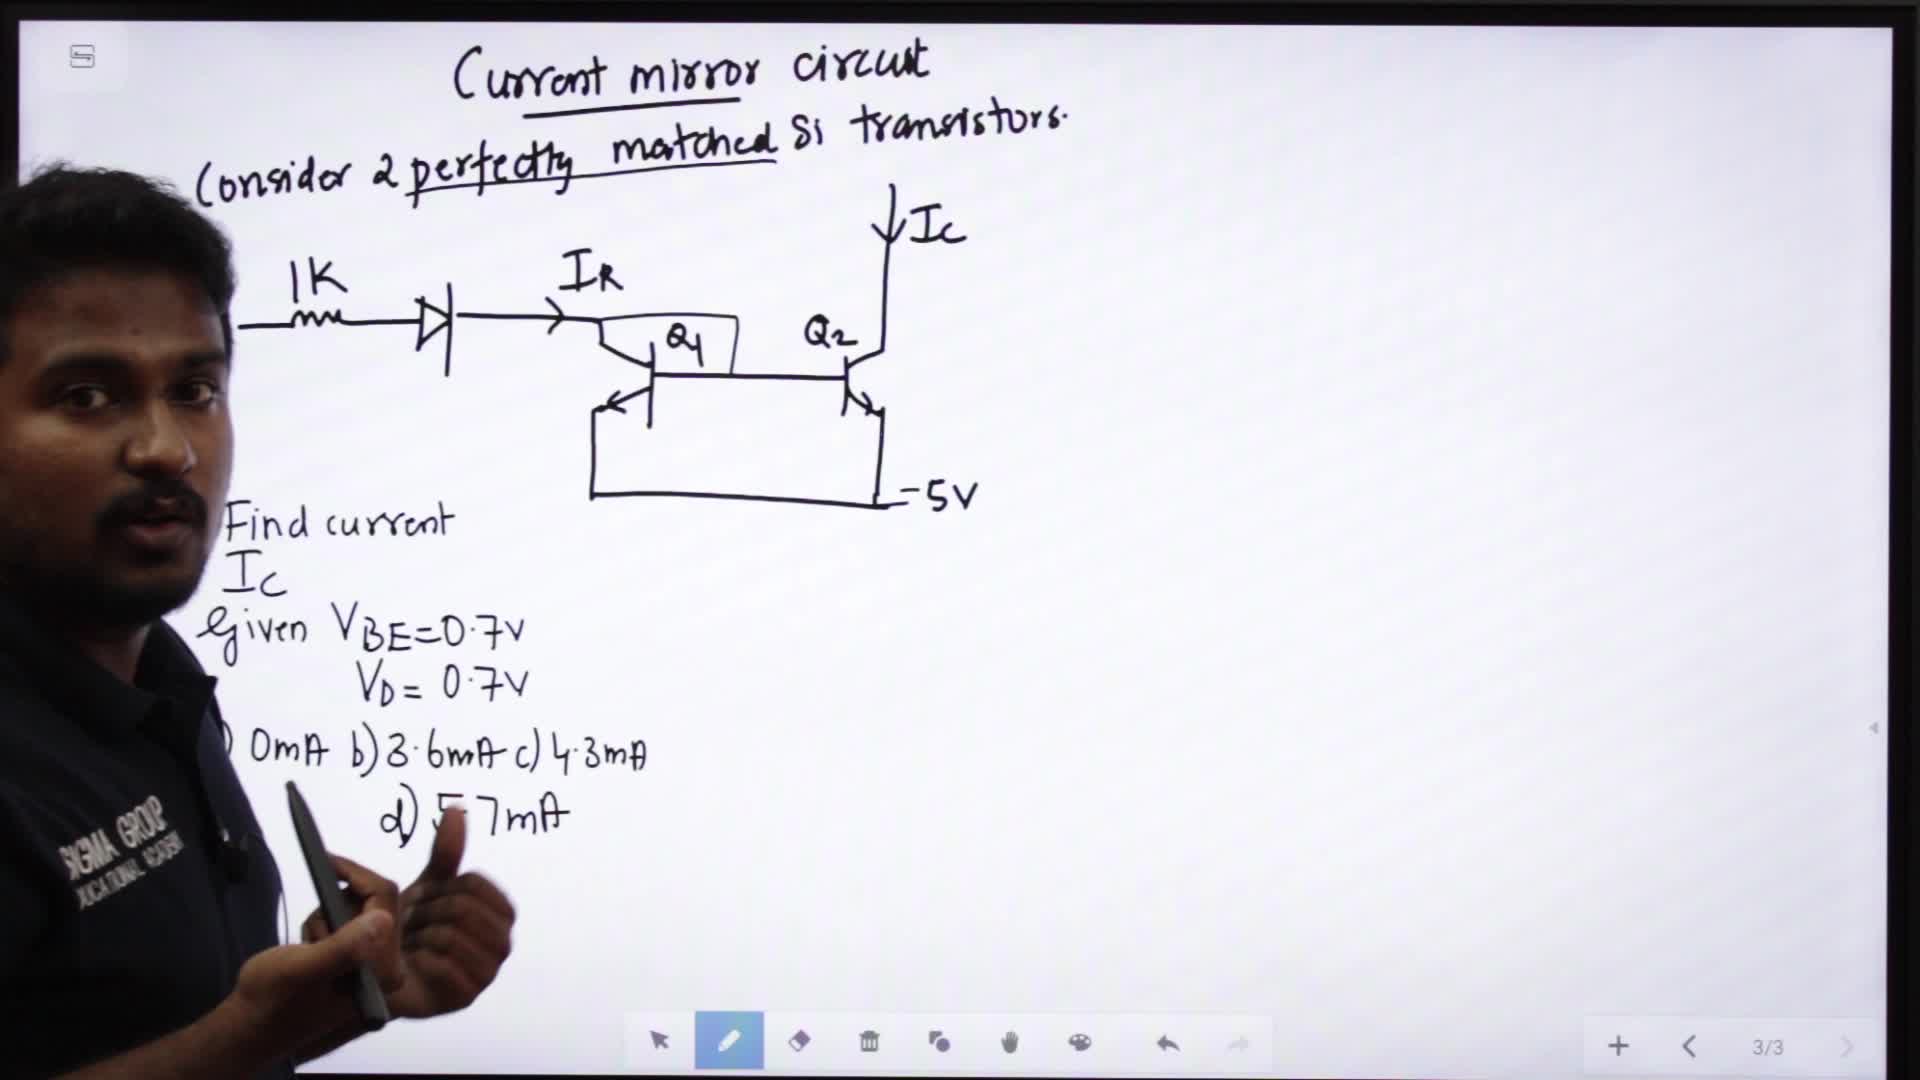 Current mirror circuit
Consider 2 perfectly matched Si transistors.
IC
1K
IR
Q1
Q2
-5V
Find current
IC
Given VBE=0.7V
VD= 0.7V
) 0mA b) 3.6mA c) 4.3mA
d) 5 7mA
SIGMA GROUP
EDUCATIONAL ACADEMY
3/3